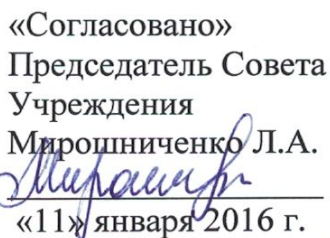 «Согласовано»
Председатель Совета
Учреждения
Мирошниченко Л.А.
«11» января 2016 г.